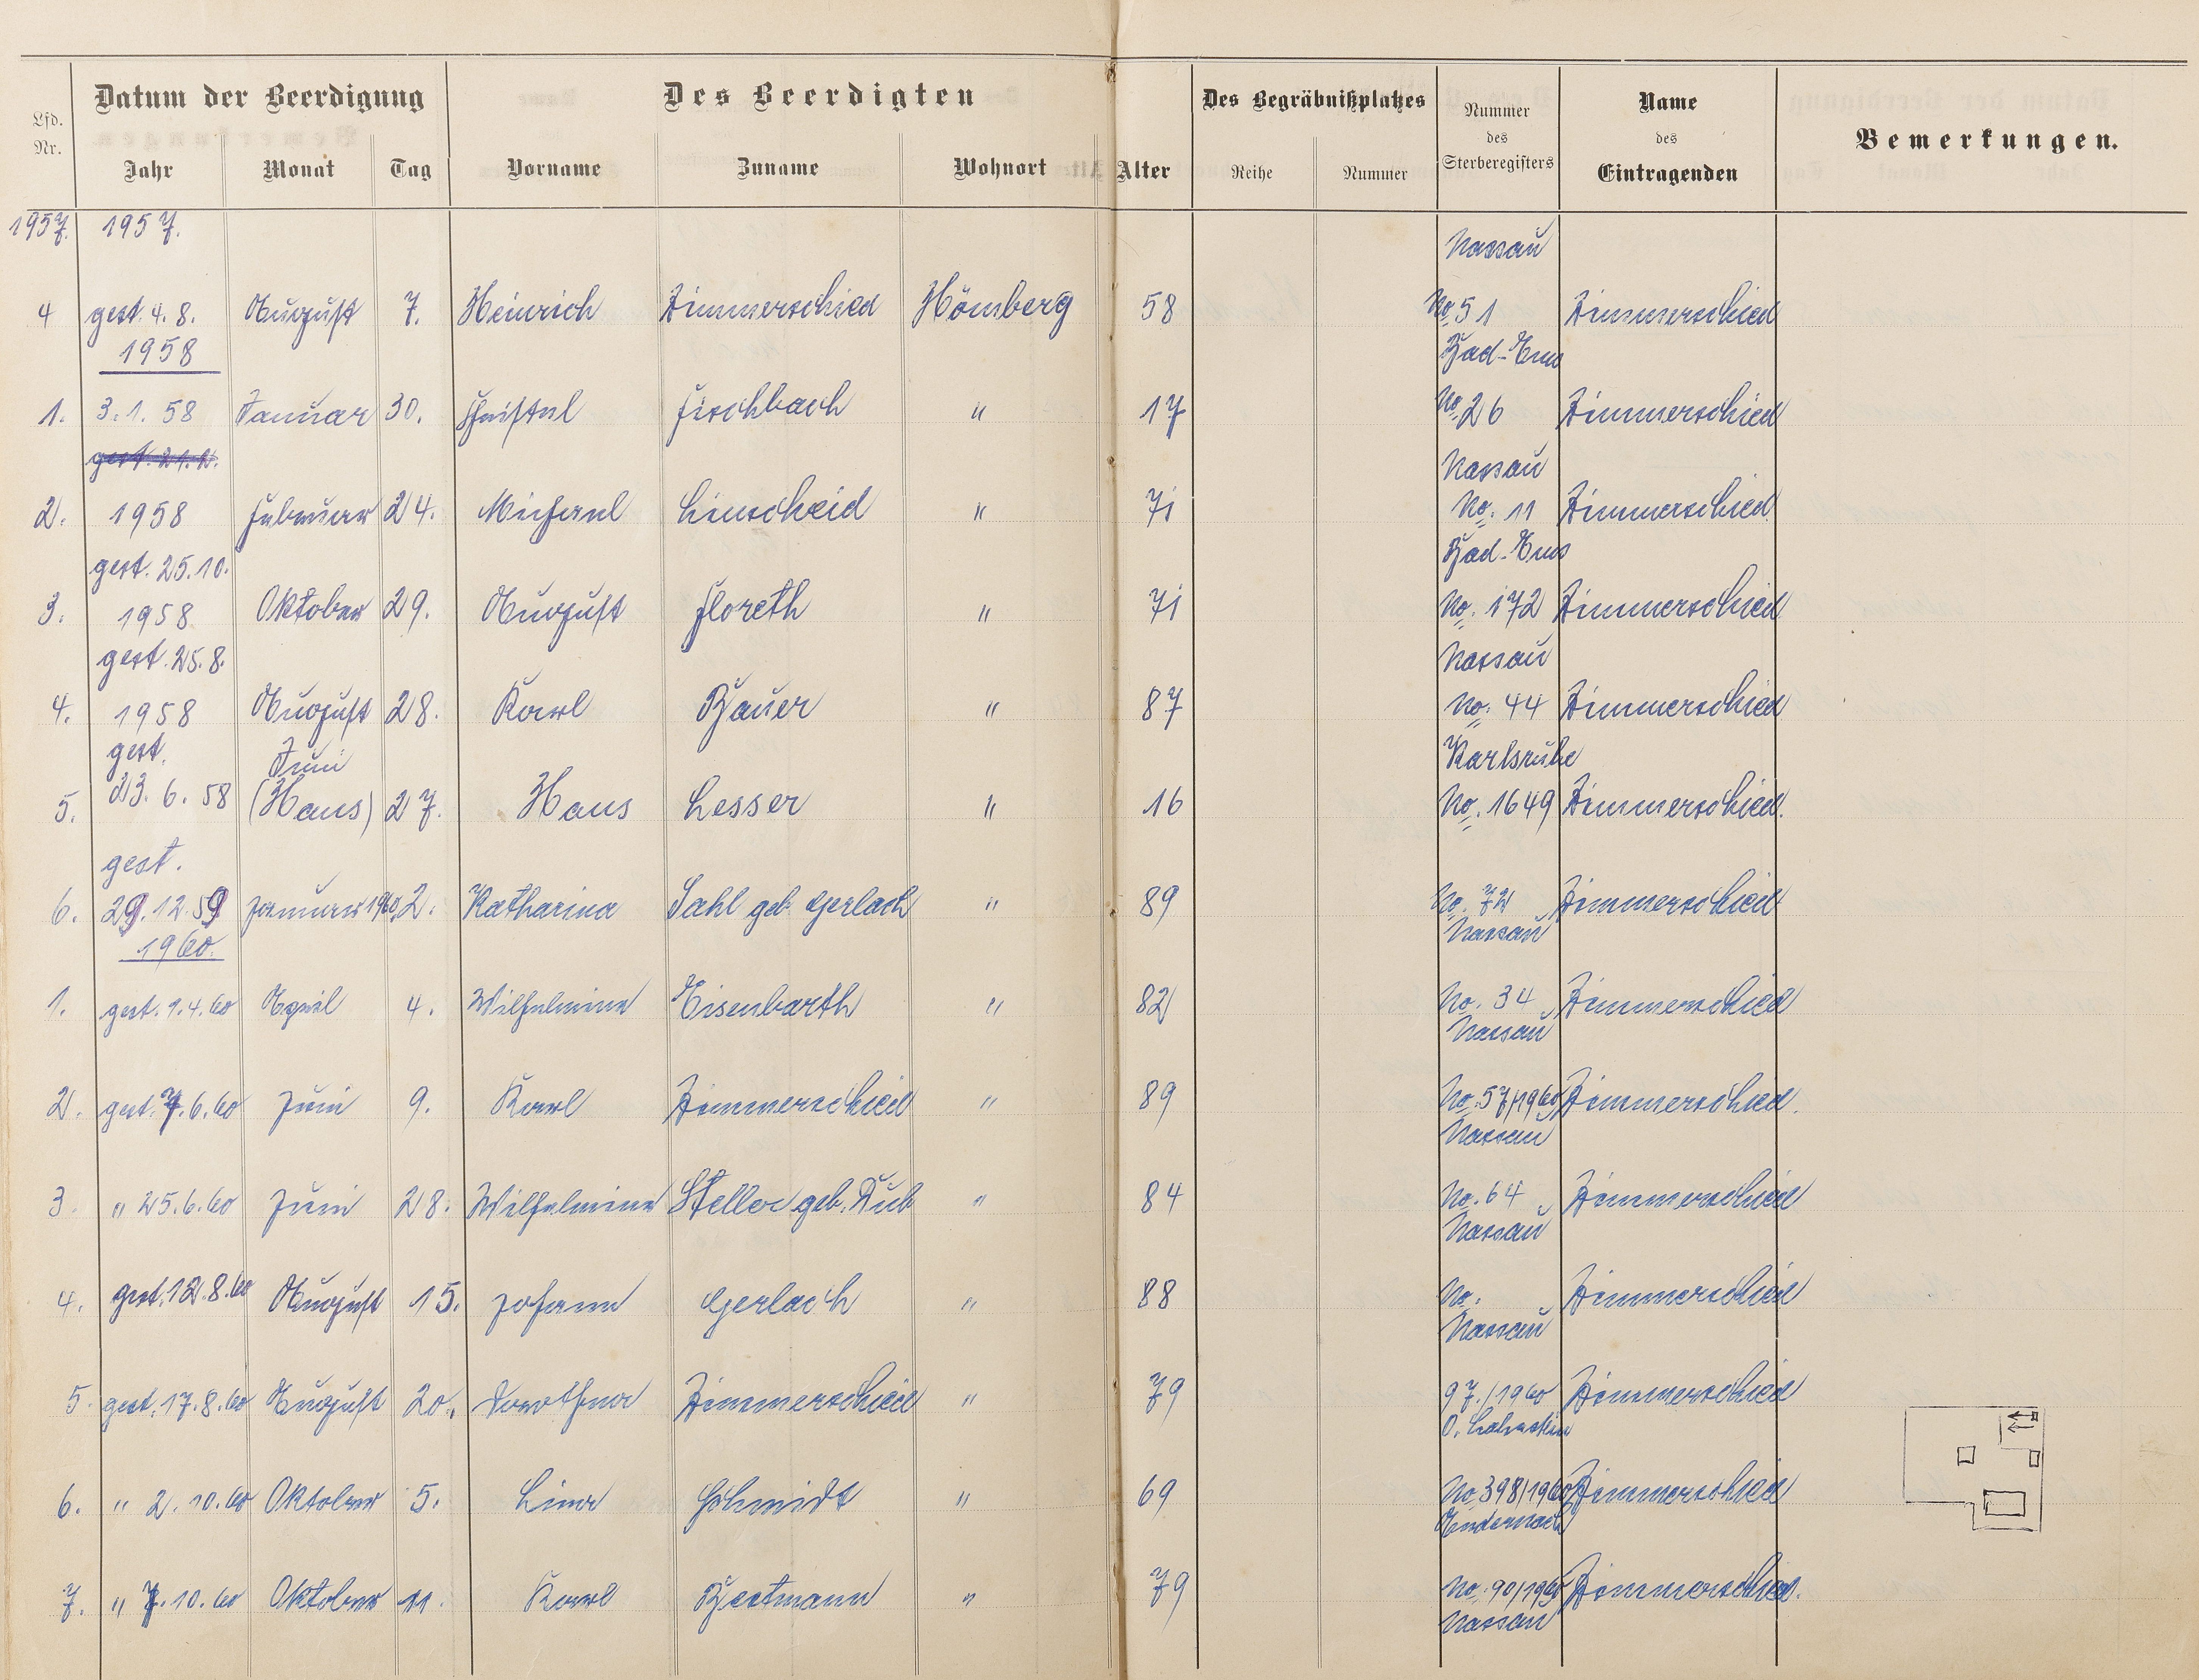 Datum der Beerdigung Des Beerdigten Des Begräbnißplatzes Name
Lfd. Nr. Jahr Monat Tag Vorname Zuname Wohnort Alter Reihe Nummer Nummer des Sterberegisters des Eintragenden Bemerkungen.
1957. 1957.
Nassau
4 gest. 4. 8. August 7. Heinrich Zimmerschied Hömberg 58 No 51 Zimmerschied
1958 Bad-Ems
1. 3. 1. 58 Januar 30. Fischbach " 17 No 26 Zimmerschied
gest. 21. 2. Nassau
2. 1958 Februar 24. Michael Linscheid " 71 No. 11 Zimmerschied
gest. 25. 10. Bad-Ems
3. 1958 Oktober 29. August Floreth " 71 No. 172 Zimmerschied
gest. 25. 8. Nassau
4. 1958 August 28. Karl Bauer " 87 No. 44 Zimmerschied
gest. Juni Karlsruhe
5. 23. 6. 58 (Hans) 27. Hans Lesser " 16 No. 1649 Zimmerschied.
gest.
6. 29. 12. 59 Januar 1960 2. Katharina Sahl geb. Gerlach " 89 No. 72 Zimmerschied
1960. Nassau
1. gest. 1. 4. 60 April 4. Wilhelmine Eisenbarth " 82 No. 34 Zimmerschied
Nassau
2. gest. 7. 6. 60 Juni 9. Karl Zimmerschied " 89 No. 57/1960 Zimmerschied.
Nassau
3. " 25. 6. 60 Juni 28. Wilhelmine geb. " 84 No. 64 Zimmerschied
Nassau
4. gest. 12. 8. 60 August 15. Johann Gerlach " 88 No. Zimmerschied
Nassau
5. gest. 17. 8. 60 August 20. Dorothea Zimmerschied " 79 97./1960 Zimmerschied
O. Lahnstein
6. " 2. 10. 60 Oktober 5. Lina Schmidt " 69 No. 398/1960 Zimmerschied
Andernach
7. " 7. 10. 60 Oktober 11. Karl " 79 No. 90/1960 Zimmerschied.
Nassau